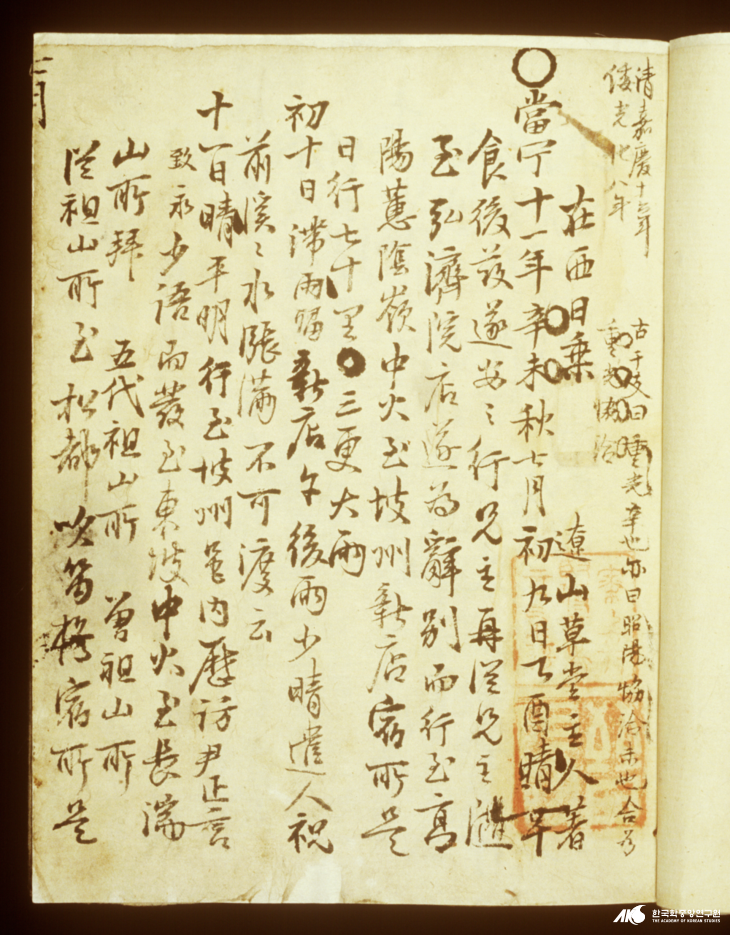 清嘉慶十六年
倭光化八年
古干支曰重光辛也亦曰昭陽協洽未也合爲
重光協洽
在西日乗 遼山草堂主人著
○當宁十一年辛未秋七月初九日丁酉晴早
食後發遂安之行兄主再從兄主隨
至弘濟院店遂爲辭別而行至高
陽蕙陰嶺中火至坡州新店宿所是
日行七十里○三更大雨
初十日滯雨留新店午後雨少晴遣人視
前溪〻水漲滿不可渡云
十一日晴平明行至坡州邑內歷訪尹正言
致永少語而發至東坡中火至長湍
山所拜 五代祖山所 曾祖山所
從祖山所至松都吹笛橋宿所是
七月
한국학중앙연구원
THE ACADEMY OF KOREAN STUDIES